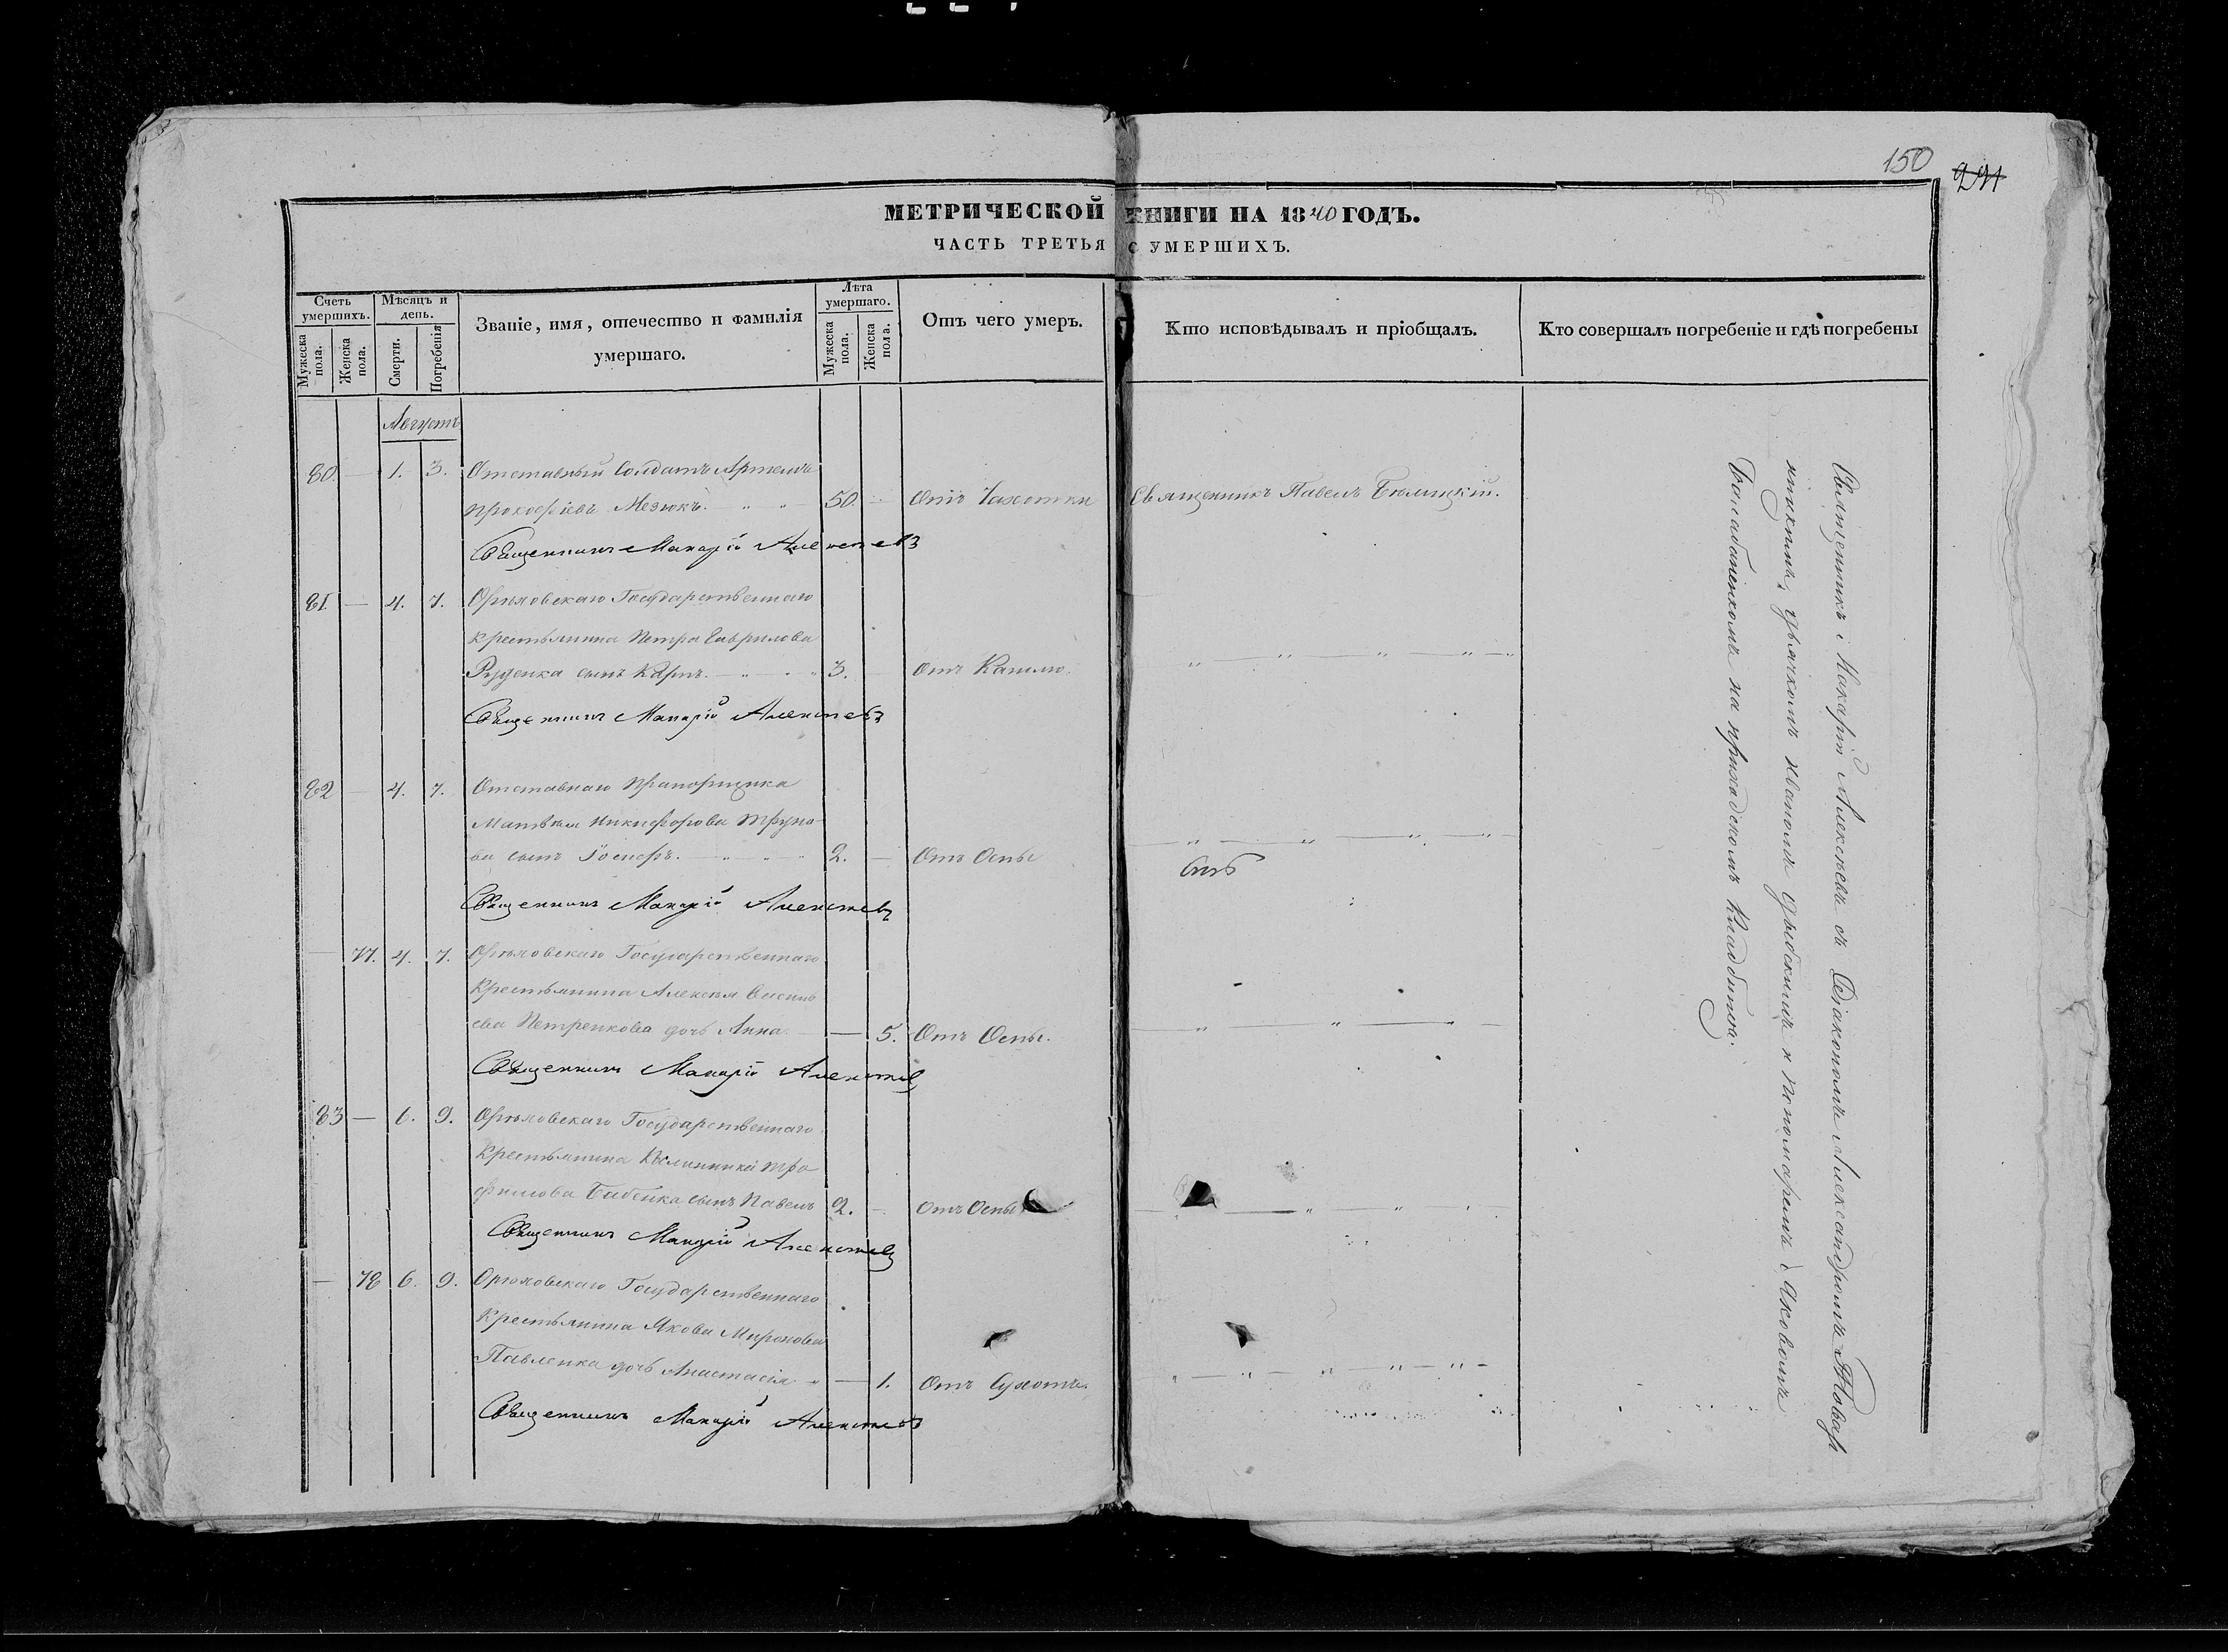 150
291
МЕТРИЧЕСКОЙ КНИГИ НА 1840 ГОДЪ.
ЧАСТЬ ТРЕТЬЯ О УМЕРШИХЪ.
Счетъ умершихъ.
Мужеска пола.
Женска пола.
Мѣсяцъ и день.
Смерти.
Погребенія
Званіе, имя, отечество и фамилія
умершаго.
Лѣта умершаго.
Мужеска пола.
Женска пола.
Отъ чего умеръ.
Кто исповѣдывалъ и пріобщалъ.
Кто совершалъ погребеніе и гдѣ погребены
Августъ
80. — 1. 3. Отставный Солдатъ Артемъ
Прокофіевъ Мезюкъ. 50. — Отъ Чахотки Священникъ Павелъ Бѣлицкій.
Священникъ Макарій Алексѣевъ
81. — 4. 7. Орѣховскаго Государственнаго
крестьянина Петра Гаврилова
Руденка сынъ Карпъ. 3. — Отъ Кашлю.
Священникъ Макарій Алексѣевъ
82 — 4. 7. Отставнаго Прапорщика
Матвѣя Никифорова Труно-
ва сынъ Іосифъ. 2. — Отъ Оспы
Священникъ Макарій Алексѣевъ
— 77. 4. 7. Орѣховскаго Государственнаго
Крестьянина Алексѣя
Петренкова дочь Анна. — 5. Отъ Оспы.
Священникъ Макарій Алексѣевъ
83 — 6. 9. Орѣховскаго Государственнаго
Крестьянина Тро-
фимова Бабенка сынъ Павелъ 2. — Отъ Оспы
Священникъ Макарій Алексѣевъ
— 78 6. 9. Орѣховскаго Государственнаго
Крестьянина Якова Миронова
Павленка дочь Анастасія — 1. Отъ Сухотъ.
Священникъ Макарій Алексѣевъ
Священникъ Макарій Алексѣевъ съ Діакономъ Александромъ
дьячкомъ и Пономаремъ Яковомъ
на приходскомъ Кладбищѣ.